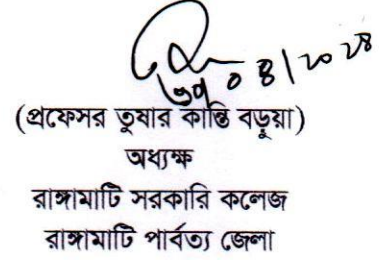 ০৪/২০২৪
(প্রফেসর তুষার কান্তি বড়ুয়া)
অধ্যক্ষ
রাঙ্গামাটি সরকারি কলেজ
রাঙ্গামাটি পার্বত্য জেলা